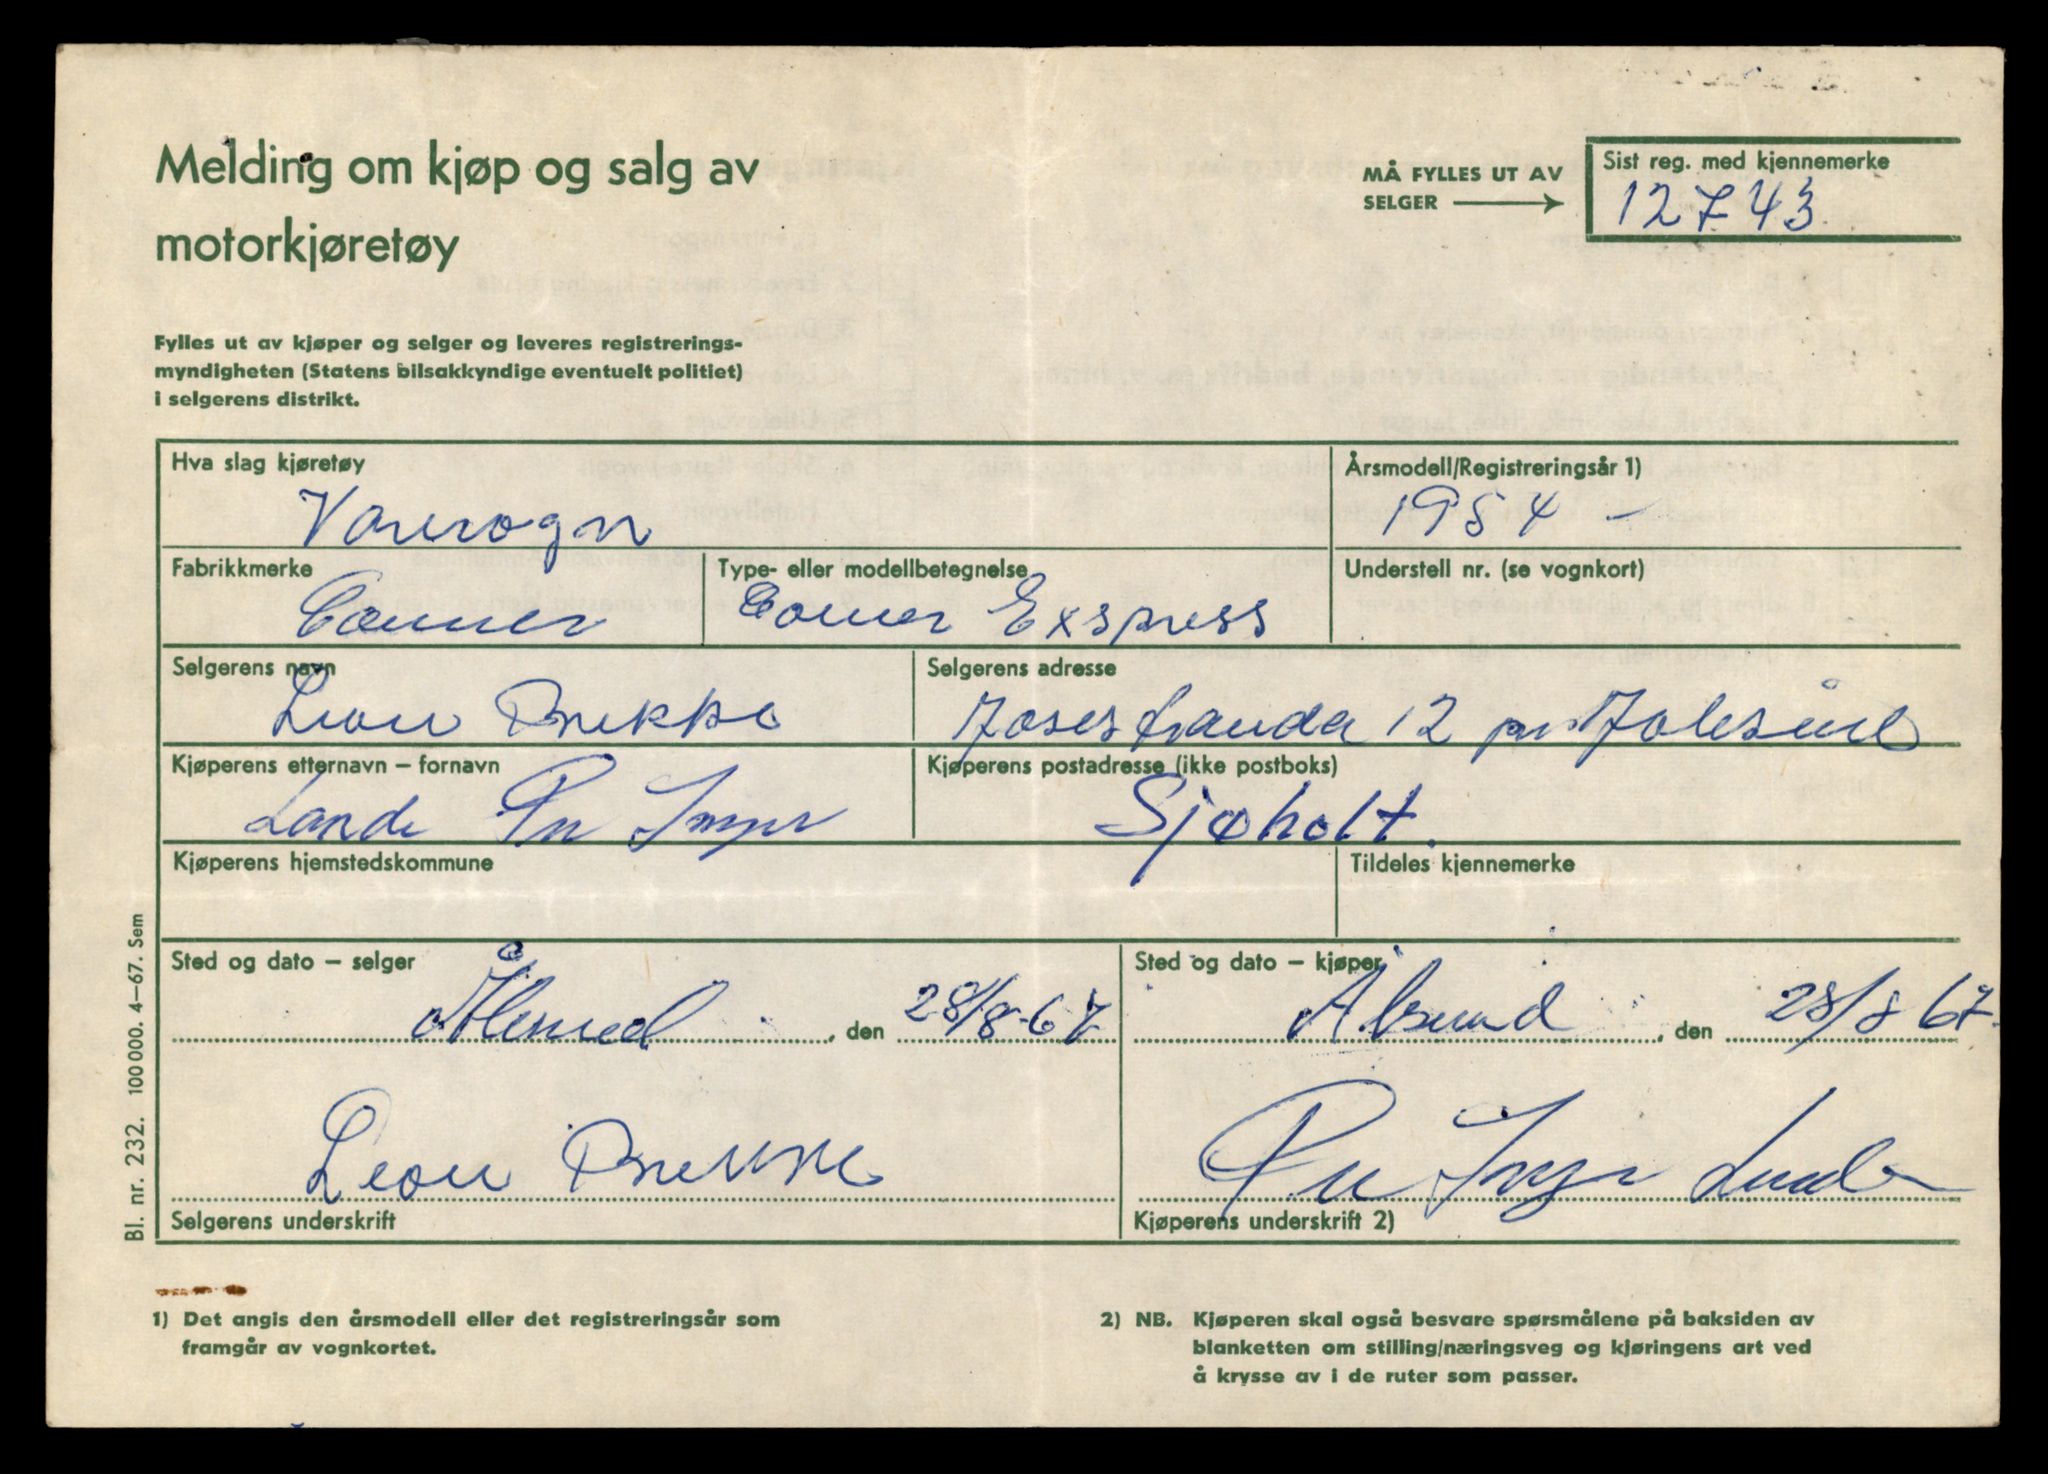 Melding om kjøp og salg av
motorkjøretøy
MÅ FYLLES UT AV
SELGER
Sist reg. med kjennemerke
12743
Fylles ut av kjøper og selger og leveres registrerings-
myndigheten (Statens bilsakkyndige eventuelt politiet)
i selgerens distrikt.
Hva slag kjøretøy
Varevogn
Årsmodell/Registreringsår 1)
1954 -
Fabrikkmerke
Type- eller modellbetegnelse
Exspress
Understell nr. (se vognkort)
Selgerens navn
Leon Brekke
Selgerens adresse
12 pr
Kjøperens etternavn – fornavn
Lande Per Inge
Kjøperens postadresse (ikke postboks)
Sjøholt.
Kjøperens hjemstedskommune
Tildeles kjennemerke
Sted og dato – selger
Ålesund, den 28/8-67
Sted og dato – kjøper
Ålesund, den 28/8 67.
Leon Brekke
Selgerens underskrift
Per Inge Lande
Kjøperens underskrift 2)
Bl. nr. 232. 100000. 4–67. Sem
1) Det angis den årsmodell eller det registreringsår som
framgår av vognkortet.
2) NB. Kjøperen skal også besvare spørsmålene på baksiden av
blanketten om stilling/næringsveg og kjøringens art ved
å krysse av i de ruter som passer.